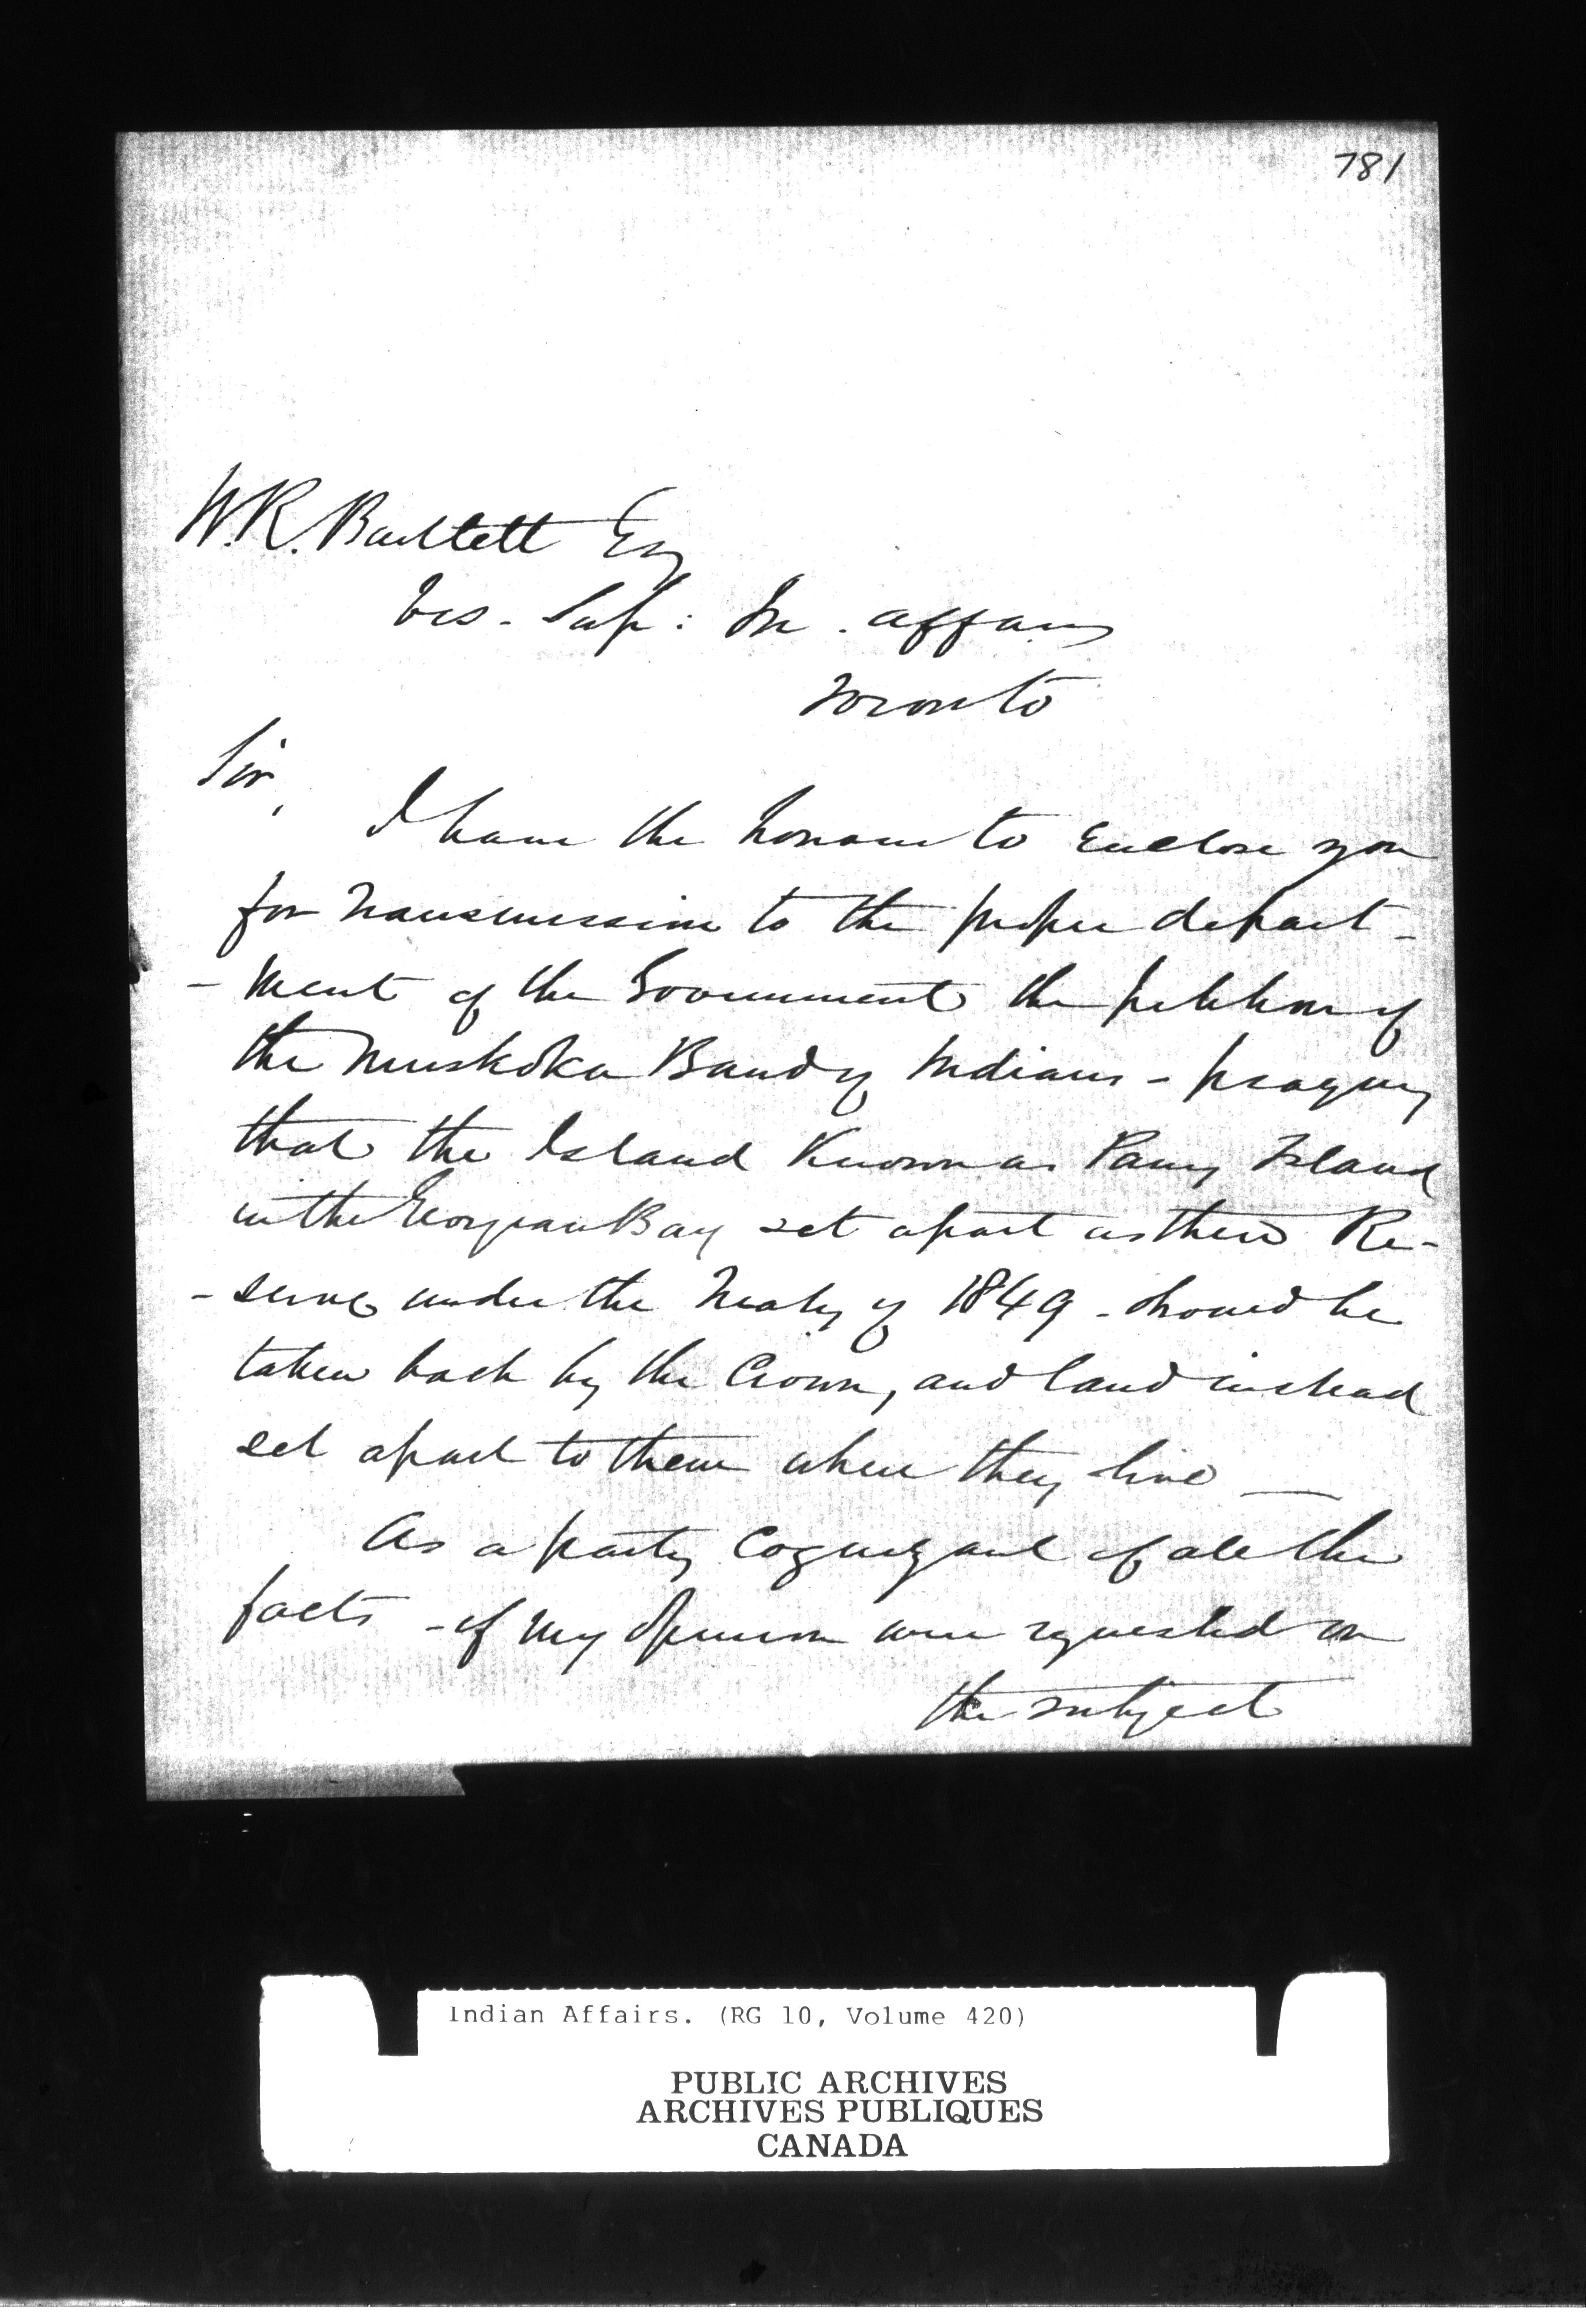 781
W.R. Bartlett Esq
Vis. Sup: In. affairs
Toronto
Sir,
I have the honour to Enclose you
for transmission to the proper depart-
-ment of the Government the petition of
the Muskoka Band of Indians - praying
that the Island Known as Parry Island
in the Georgian Bay set apart as their Re-
-serve under the Treaty of 1849 - should be
taken back by the Crown, and land instead
set apart to them where they live
As a party Cognizant of all the
facts - if my Opinion were requested on
the subject
Indian Affairs. (RG 10, Volume 420)
PUBLIC ARCHIVES
ARCHIVES PUBLIQUES
CANADA